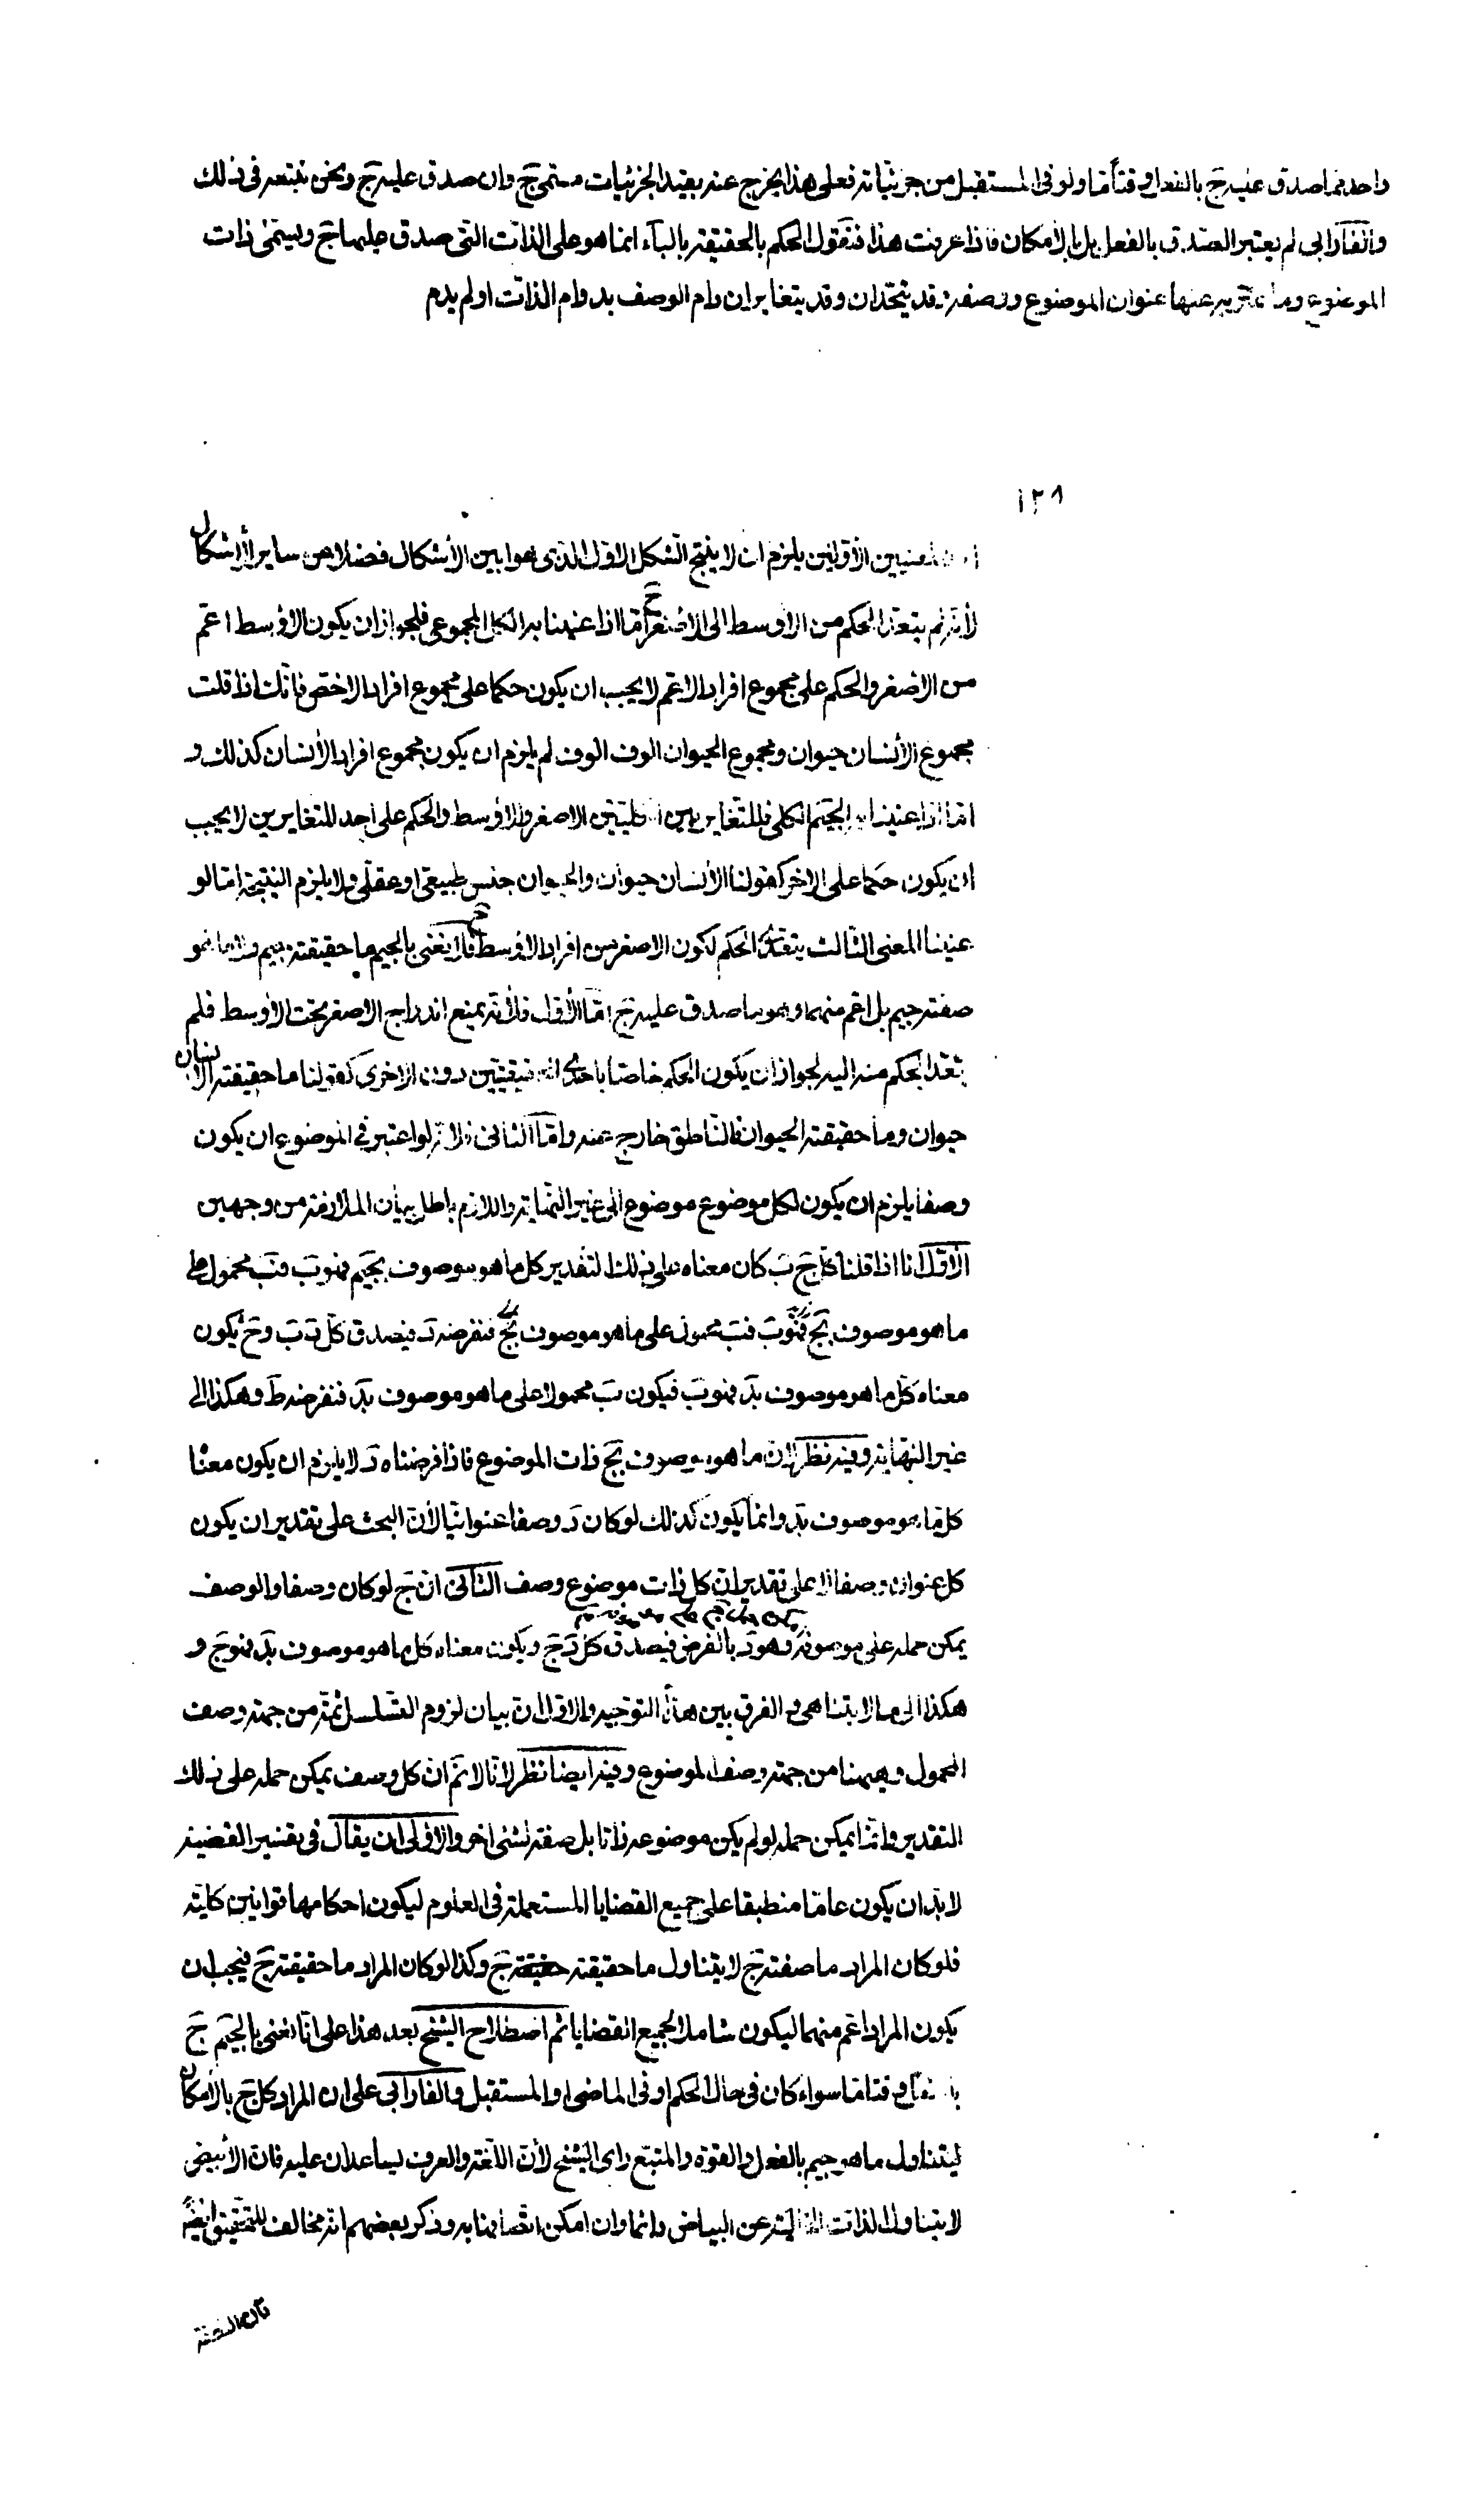 واحد مما صدق عليه ج بالفعل وقتا ما ولو فى المستقبل من جزئياته فعلى هذا يخرج عنه بقيد الجزئيات مسمى ج وان صدق عليه ج ونحن نتبعه فى ذلك
والفارابى لم يعتبر الصدق بالفعل بل بالامكان فاذا عرفت هذا فنقول الحكم بالحقيقة بالباء انما هو على الذات التى صدق عليها ج ويسمى ذات
الموضوع وما يعبر به عنها عنوان الموضوع ووصفه وقد يتحدان وقد يتغايران دام الوصف بدوام الذات او لم يدم
١٢٨
المعنيين الأولين يلزم ان لا ينتج الشكل الاول الذى هو ابين الأشكال فضلا عن ساير الأشكال
لأنه لم يتعد الحكم من الاوسط الى الاصغر ح اما اذا عنينا به الكل المجموعى فلجواز ان يكون الاوسط اعم
من الاصغر والحكم على مجموع افراد الاعم لا يجب ان يكون حكما على مجموع افراد الاخص فانك اذا قلت
مجموع الأنسان حيوان ومجموع الحيوان الوف الوف لم يلزم ان يكون مجموع افراد الأنسان كذلك و
اما اذا عنينا به الجيم الكلى فللتغاير بين الكليتين الاصغر والاوسط والحكم على احد المتغايرين لا يجب
ان يكون حكما على الاخر كقولنا الأنسان حيوان والحيوان جنس طبيعى او عقلى ولا يلزم النتيجة اما لو
عنينا المعنى الثالث يتعد الحكم لكون الاصغر من افراد الاوسط ح فلا نعنى بالجيم ما حقيقته جيم ولا ما هو
صفته جيم بل اعم منهما وهو ما صدق عليه ج اما الأول فلأنه يمنع اندراج الاصغر تحت الاوسط فلم
يتعد الحكم منه اليه لجواز ان يكون الحكم خاصا باحدى الحقيقتين دون الاخرى كقولنا ما حقيقته الانسان
حيوان وما حقيقته الحيوان فالناطق خارج عنه واما الثانى فلانه لو اعتبر فى الموضوع ان يكون
وصفا يلزم ان يكون لكل موضوع موضوع الى غير النهاية واللازم باطل بيان الملازمة من وجهين
الأول انا اذا قلنا كل ج ب كان معناه على ذلك التقدير كل ما هو موصوف بجيم فهو ب فب محمول على
ما هو موصوف بج فهو ب فب محمول على ما هو موصوف بج فنفرضه د فيصدق كل د ب وح يكون
معناه كل ما هو موصوف بد فهو ب فيكون ب محمولا على ما هو موصوف بد فنفرضه ط وهكذا الى
غير النهاية وفيه نظر لان ما هو موصوف بج ذات الموضوع فاذا فرضناه د لا يلزم ان يكون معناه
كل ما هو موصوف بد وانما يكون كذلك لو كان د وصفا عنوانيا لأن البحث على تقدير ان يكون
كل عنوان وصفا لا على تقدير ان كل ذات موضوع وصف الثانى ان ج لو كان وصفا والوصف
يمكن حمله على موصوفه وهو د بالفرض فيصدق كل د ج ويكون معناه كل ما هو موصوف بد فهو ج و
هكذا الى ما لا يتناهى والفرق بين هذا التوجيه والاول ان بيان لزوم التسلسل ثمة من جهة وصف
المحمول وههنا من جهة وصف الموضوع وفيه ايضا نظر لانا لا نم ان كل وصف يمكن حمله على ذلك
التقدير وانما يمكن حمله لو لم يكن موضوعه ذاتا بل صفة لشئ اخر والاولى ان يقال فى تفسير القضية
لا بد ان يكون عاما منطبقا على جميع القضايا المستعملة فى العلوم ليكون احكامها قوانين كلية
فلو كان المراد ما صفته ج لا يتناول ما حقيقته حقيقته ج وكذا لو كان المراد ما حقيقته ج فيجب ان
يكون المراد اعم منهما ليكون شاملا لجميع القضايا ثم اصطلاح الشيخ بعد هذا على انا نعنى بالجيم ج
بالفعل وقتا ما سواء كان فى حال الحكم او فى الماضى او المستقبل والفارابى على ان المراد كل ج بالأمكان
ليتناول ما هو جيم بالفعل والقوة والمتبع راى الشيخ لأن اللغة والعرف يساعدان عليه فان الأبيض
لا يتناول الذات الخالية عن البياض دائما وان امكن اتصافها به وذكر بعضهم انه مخالف للتحقيق ايضا